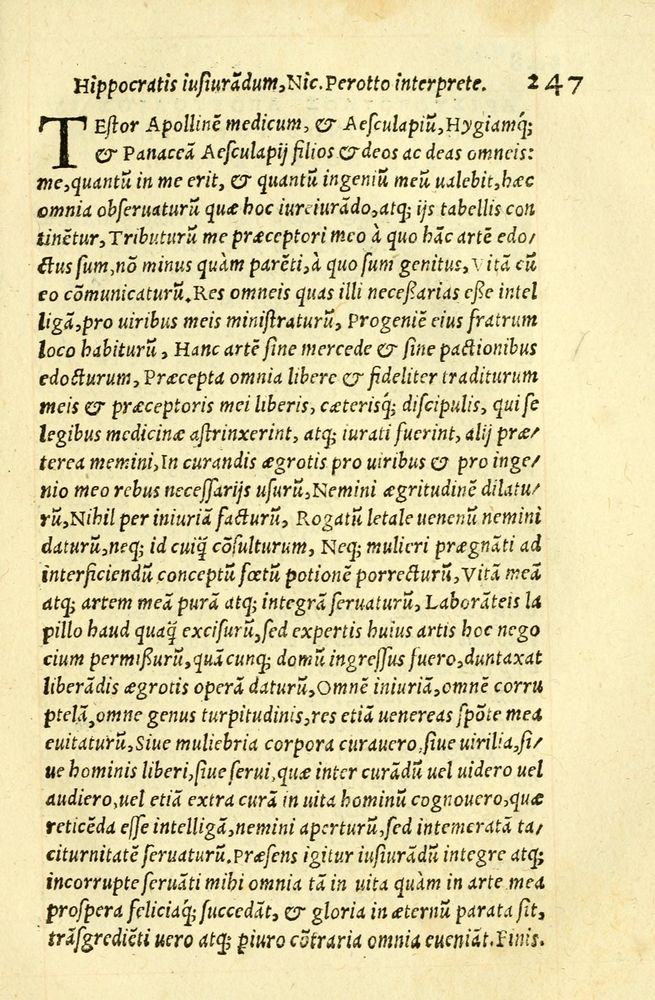 Hippocratis iusiurãdum, Nic. Perotto interprete. 247
TEstor Apollinẽ medicum, & Aesculapiũ, Hygiamq́;
& Panaceã Aesculapij filios & deos ac deas omneis:
me, quantũ in me erit, & quantũ ingeniũ meũ ualebit, hæc
omnia obseruaturũ quæ hoc iureiurãdo, atq; ijs tabellis con
tinẽtur, Tributurũ me præceptori meo à quo hãc artẽ edo/
ctus sum, nõ minus quàm parẽti, à quo sum genitus, Vitã cũ
eo cõmunicaturũ. Res omneis quas illi necessarias esse intel
ligã, pro uiribus meis ministraturũ, Progeniẽ eius fratrum
loco habiturũ, Hanc artẽ sine mercede & sine pactionibus
edocturum, Præcepta omnia libere & fideliter traditurum
meis & præceptoris mei liberis, cæterisq́; discipulis, qui se
legibus medicinæ astrinxerint, atq; iurati fuerint, alij præ/
terea memini, In curandis ægrotis pro uiribus & pro inge/
nio meo rebus necessarijs usurũ, Nemini ægritudinẽ dilatu/
rũ, Nihil per iniuriã facturũ, Rogatũ letale uenenũ nemini
daturũ, neq; id cuiq̃ cõsulturum, Neq; mulieri prægnãti ad
interficiendũ conceptũ fœtũ potionẽ porrecturũ, Vitã meã
atq; artem meã purã atq; integrã seruaturũ, Laborãteis la
pillo haud quaq̃ excisurũ, sed expertis huius artis hoc nego
cium permissurũ, quãcunq; domũ ingressus fuero, duntaxat
liberãdis ægrotis operã daturũ, Omnẽ iniuriã, omnẽ corru
ptelã, omne genus turpitudinis, res etiã uenereas spõte mea
euitaturũ, Siue muliebria corpora curauero, siue uirilia, si/
ue hominis liberi, siue serui, quæ inter curãdũ uel uidero uel
audiero, uel etiã extra curã in uita hominũ cognouero, quæ
reticẽda esse intelligã, nemini aperturũ, sed intemeratã ta/
citurnitatẽ seruaturũ. Præsens igitur iusiurãdũ integre atq;
incorrupte seruãti mihi omnia tã in uita quàm in arte mea
prospera feliciaq́; succedãt, & gloria in æternũ parata sit,
trãsgrediẽti uero atq; piuro cõtraria omnia eueniãt. Finis.